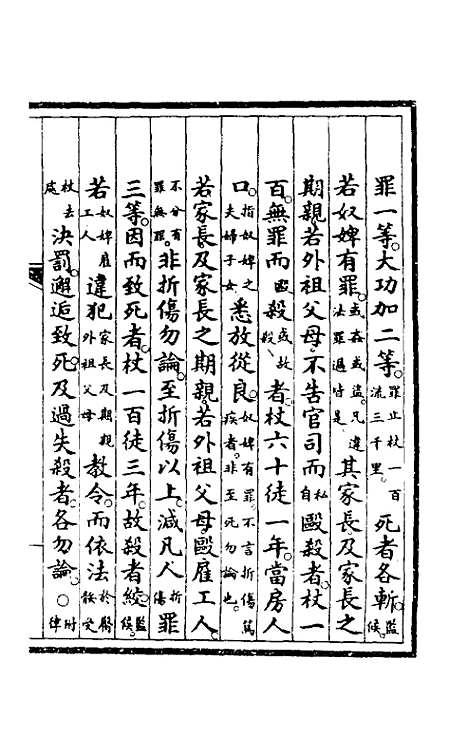 罪一等。大功加二等。罪止杖一百流三千里。死者各斬。監候。
若奴婢有罪。或姦或盜凡違法罪過皆是。其家長及家長之
期親若外祖父母。不告官司而私自毆殺者。杖一
百。無罪而毆殺或故殺者。杖六十徒一年。當房人
口。指奴婢之夫婦子女悉放從良。奴婢有罪不言折傷篤疾者非至死勿論也。
若家長及家長之期親。若外祖父母毆雇工人。
不分有罪無罪。非折傷勿論。至折傷以上。減凡人折傷罪
三等。因而致死者。杖一百徒三年。故殺者絞。監候。
若奴婢雇工人違犯家長及期親外祖父母教令。而依法於臀腿受
杖去處決罰。邂逅致死。及過失殺者。各勿論。○附律